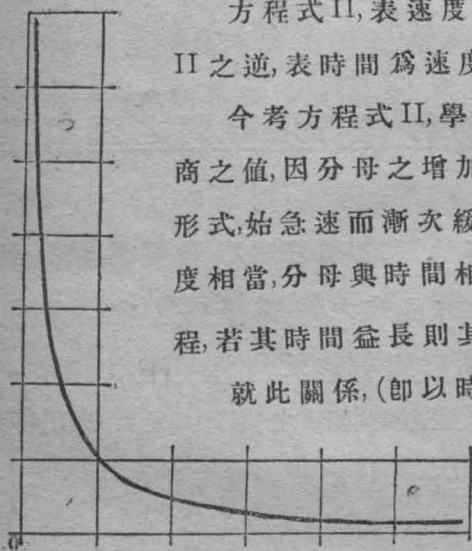 方程式II,表速度
II之逆,表時間爲速度
今考方程式II,學
商之值,因分母之增加
形式,始急速而漸次緩
度相當,分母與時間相
程,若其時間益長則其
就此關係,(卽以時
0